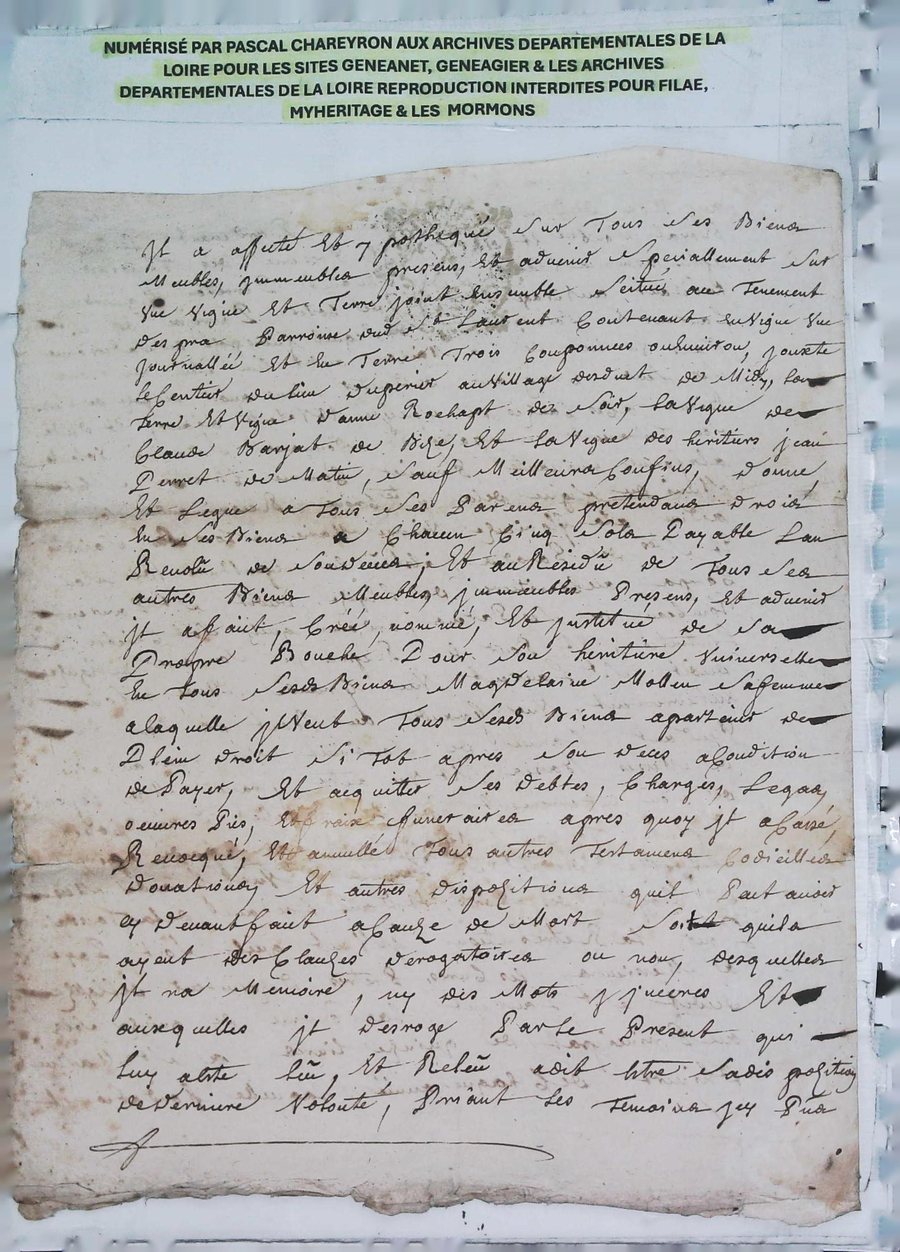 NUMÉRISÉ PAR PASCAL CHAREYRON AUX ARCHIVES DEPARTEMENTALES DE LA
LOIRE POUR LES SITES GENEANET, GENEAGIER & LES ARCHIVES
DEPARTEMENTALES DE LA LOIRE REPRODUCTION INTERDITES POUR FILAE,
MYHERITAGE & LES MORMONS
jl a affecté Et ypothequé Sur Tous Ses Biens
Meubles, jmmeubles presens, Et advenir Speciallement Sur
Vue Vigne Et Terre joint Ensemble Scitué au Tenement
Despra Parroisse dud St Laurent Contenant En Vigne Vne
journallée Et En Terre Trois Couponnées ou Environ, jouxte
le Sentier du lieu au Village de Midy, La
terre Et Vigne d'anne Rochapt de Soir, La Vigne de
Claude Barjat de Bize, Et La Vigne des heritiers jean
Perret de Matin, Sauf Meilleurs Confins, donne,
Et Legue a Tous Ses Parens pretendans Droit
En Ses Biens a Chacun Cinq Sols Payable Lan
Revolu de Son Deces; Et au Residu de Tous Ses
autres Biens Meubles jmmeubles Presens, Et advenir
jl a fait, Créé, nommé, Et jnstitué de Sa
Propre Bouche Pour Son heritiere Vniverselle
En Tous Sesds Biens Magdelaine Mollen Safemme
alaquelle jlVeut Tous Sesds Biens apartenir de
Plein droit Si Tot apres Son deces aCondition
de Payer, Et acquitter Ses Debtes, Charges, Legas,
oeuvres Pies, Et fraix funeraires apres quoy jl aCassé,
Revocqué, Et annullé Tous autres Testamens Codicilles
Donations, Et autres dispozitions quil Peut avoir
cy Devant fait aCauze de Mort Soit quils
ayent des Clauzes Derogatoires ou non, desquelles
jl na Memoire, ny des Mots y jnceres Et
ausquelles jl Desroge Parle Present qui
Luy aeste Lû, Et Relû adit Estre Sa dispozition
de Derniere Volonté, Priant Les Temoins jcy Pns